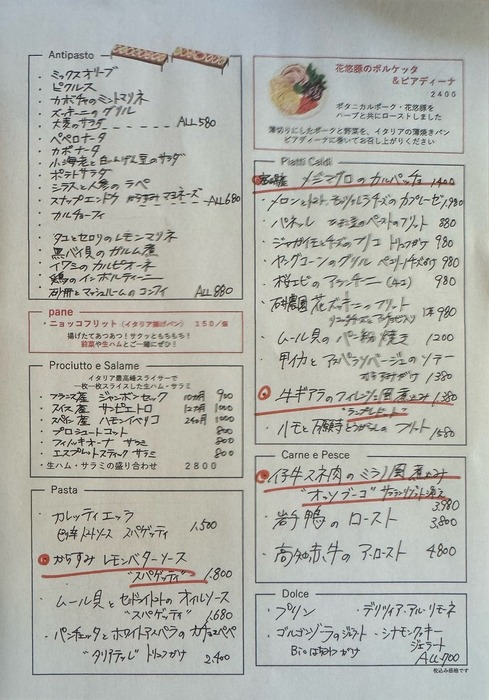 Antipasto
・ミックスオリーブ
・ピクルス
・カボチャのミントマリネ
・ズッキーニのグリル
・大麦のサラダ ALL 580
・ペペロナータ
・カポナータ
・小海老と白いんげん豆のサラダ
・ポテトサラダ
・シラスと人参のラペ
・スナップエンドウ からすみマヨネーズ ALL 680
・カルチョーフィ
・タコとセロリのレモンマリネ
・黒バイ貝のガルム煮
・イワシのカルピオーネ
・鶏のインボルティーニ
・砂肝とマッシュルームのコンフィ ALL 880
pane
・ニョッコフリット(イタリア揚げパン) 150/個
揚げたてあつあつ!サクッともちもち!
前菜や生ハムとご一緒にぜひ!
Prociutto e Salame
イタリア最高峰スライサーで
一枚一枚スライスした生ハム・サラミ
フランス産 ジャンボンセック 10ヵ月 900
スイス産 サンピエトロ 12ヵ月 1000
スペイン産 ハモンイベリコ 24ヵ月 1000
・プロシュートコット 800
・フィノッキオーナ サラミ 800
・エスプレットスティック サラミ 800
・生ハム・サラミの盛り合わせ 2800
Pasta
・カレッティエッラ
トマトソース スパゲッティ 1,500
からすみ レモンバターソース
"スパゲッティ" 1,800
・ムール貝とセミドライトマトのオイルソース
"スパゲッティ" 1,680
・パンチェッタとホワイトアスパラのカチョエペペ
"タリアテッレ" トリュフがけ 2,400
花悠豚のポルケッタ
&ピアディーナ
2400
ボタニカルポーク・花悠豚を
ハーブと共にローストしました
薄切りにしたポークと野菜を、イタリアの薄焼きパン
ピアディーナに巻いてお召し上がりください
Piatti Caldi
メジマグロのカルパッチョ 1400
・メロンとトマト モッツァレラチーズのカプレーゼ 1,980
・パネッレ のペーストのフリット 880
・ジャガイモとチーズのフリコ トリュフがけ 980
・ヤングコーンのグリル ペコリーノチーズがけ 980
・桜エビのアランチーニ 980
・花ズッキーニ フリット
リコッタチーズ&アンチョビ 1本 980
・ムール貝のパン粉焼き 1200
・甲イカと アスパラソバージュのソテー
からすみがけ 1380
牛ギアラのフィレンツェ風煮込み 1,380
"ランプレドット"
・ハモと万願寺とうがらしの フリット 1580
Carne e Pesce
仔牛スネ肉のミラノ風煮込み
"オッソブーコ" サフランリゾット添え
3,980
・岩手鴨の ロースト 3,800
・高知赤牛の アッロースト 4800
Dolce
・プリン
・デリツィア・アル・リモーネ
・ゴルゴンゾーラのジェラート
Bioはちみつがけ
・シナモンクッキー
ジェラート
ALL 700
税込み価格です